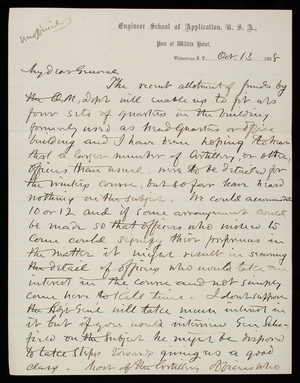 Engineer School of Application, U. S. A.,
Post of Willets Point,
Whitestone, N.Y. Oct. 13 1888
My dear General
The recent allotment of funds by
the Q.M. Dept will enable us to fit up
four sets of quarters in the building
formerly used as Head Quarters or office
building and I have been hoping to hear
that a larger number of Artillery, or other,
officers than usual, were to be detailed for
the coming course, but so far have heard
nothing on the subject. We could accommodate
10 or 12 and if some arrangement could
be made so that officers who wished to
come could signify their preference in
the matter it might result in securing
the detail of officers who would take an
interest in the course and not simply
come here to kill time. I dont suppose
the Adjt Genl will take much interest in
it but if you would interview Gen. Scho-
field on the subject he might be disposed
to take steps towards giving us a good
class. Most of the Artillery officers who